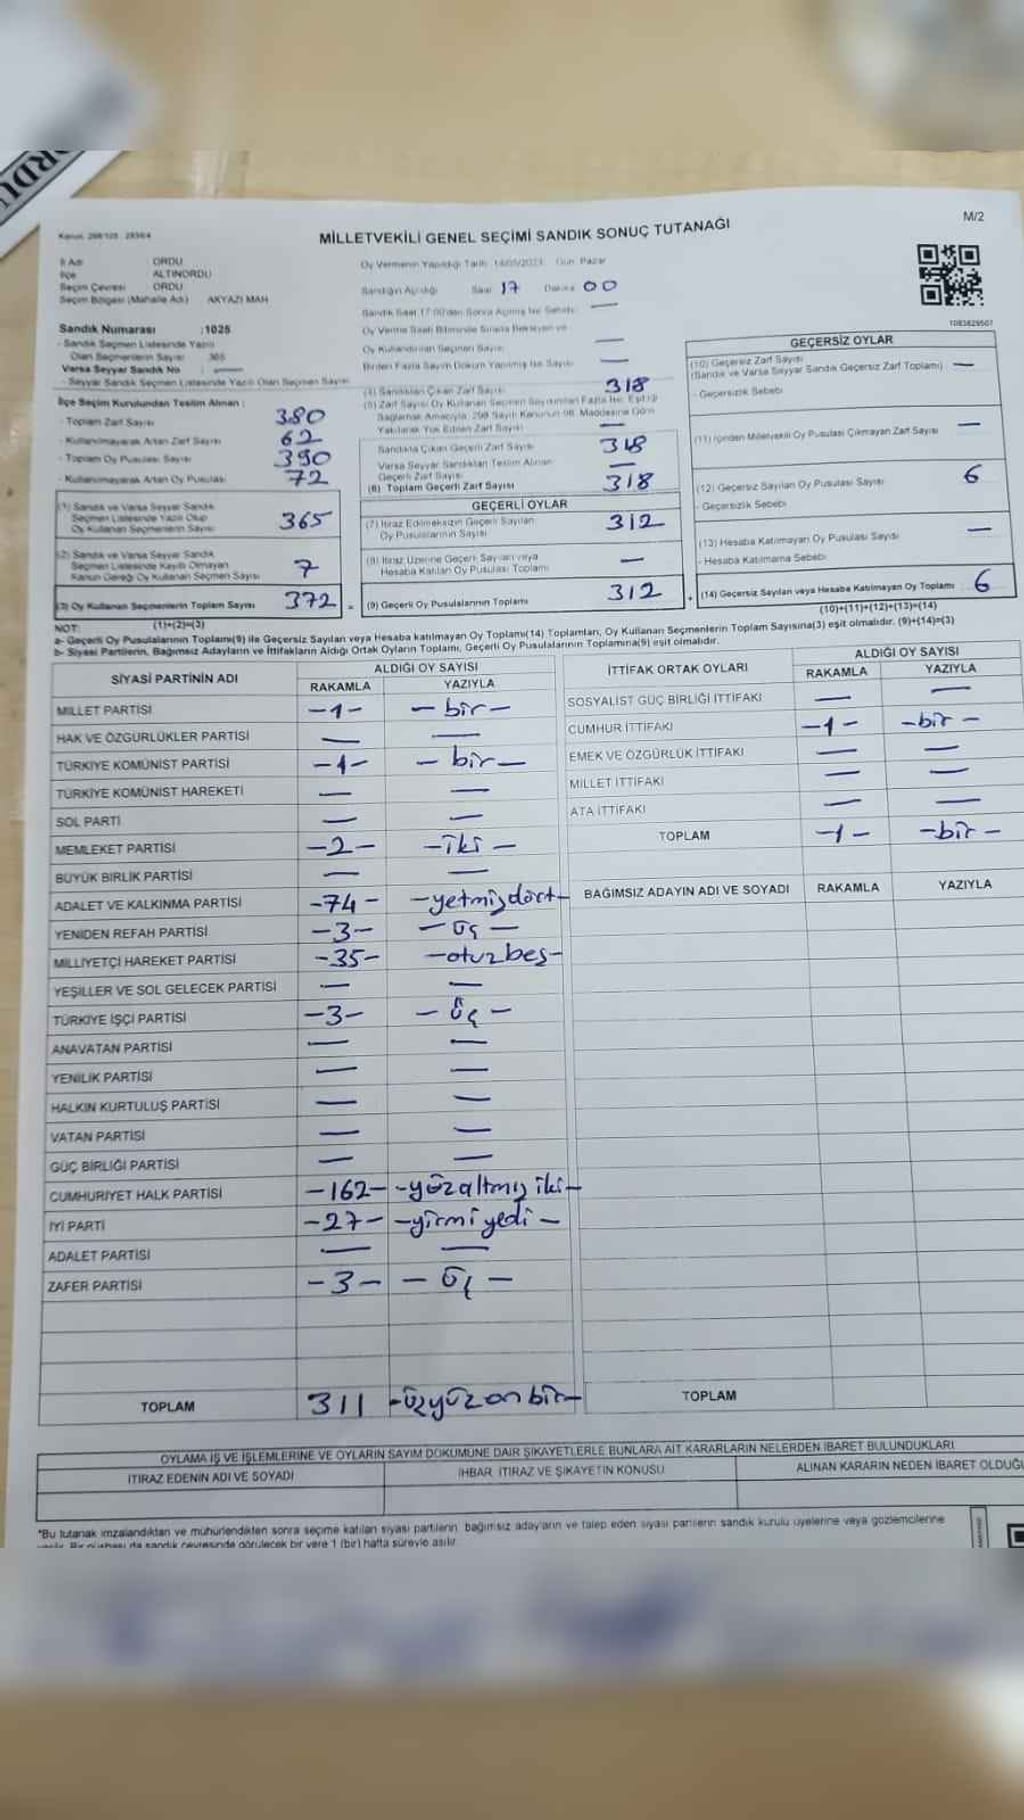 ORDU
M/2
MİLLETVEKİLİ GENEL SEÇİMİ SANDIK SONUÇ TUTANAĞI
İl Adı ORDU
İlçe ALTINORDU
Seçim Çevresi ORDU
Seçim Bölgesi (Mahalle Adı) AKYAZI MAH
Oy Vermenin Yapıldığı Tarih: 14/05/2023 Gün: Pazar
Sandığın Açıldığı Saat 17 Dakika 00
Sandık Numarası :1025
- Sandık Seçmen Listesinde Yazılı
Olan Seçmenlerin Sayısı
Varsa Seyyar Sandık No : —
- Seyyar Sandık Seçmen Listesinde Yazılı Olan Seçmen Sayısı
İlçe Seçim Kurulundan Teslim Alınan :
- Toplam Zarf Sayısı 380
- Kullanılmayarak Artan Zarf Sayısı 62
- Toplam Oy Pusulası Sayısı 390
- Kullanılmayarak Artan Oy Pusulası 72
(1) Sandık ve Varsa Seyyar Sandık
Seçmen Listesinde Yazılı Olup
Oy Kullanan Seçmenlerin Sayısı 365
(2) Sandık ve Varsa Seyyar Sandık
Seçmen Listesinde Kayıtlı Olmayan
Kanun Gereği Oy Kullanan Seçmen Sayısı 7
(3) Oy Kullanan Seçmenlerin Toplam Sayısı 372 =
Oy Kullanmamış Seçmen Sayısı —
(4) Sandıktan Çıkan Zarf Sayısı 318
Sandıkta Çıkan Geçerli Zarf Sayısı 318
Varsa Seyyar Sandıktan Teslim Alınan
Geçerli Zarf Sayısı —
(6) Toplam Geçerli Zarf Sayısı 318
GEÇERLİ OYLAR
(7) İtiraz Edilmeksizin Geçerli Sayılan
Oy Pusulalarının Sayısı 312
(8) İtiraz Üzerine Geçerli Sayılan veya
Hesaba Katılan Oy Pusulası Toplamı —
(9) Geçerli Oy Pusulalarının Toplamı 312 +
GEÇERSİZ OYLAR
(10) Geçersiz Zarf Sayısı
(Sandık ve Varsa Seyyar Sandık Geçersiz Zarf Toplamı) —
- Geçersizlik Sebebi
(11) İçinden Milletvekili Oy Pusulası Çıkmayan Zarf Sayısı —
(12) Geçersiz Sayılan Oy Pusulası Sayısı 6
- Geçersizlik Sebebi
(13) Hesaba Katılmayan Oy Pusulası Sayısı —
- Hesaba Katılmama Sebebi
(14) Geçersiz Sayılan veya Hesaba Katılmayan Oy Toplamı 6
NOT: (1)+(2)=(3) (10)+(11)+(12)+(13)=(14)
a- Geçerli Oy Pusulalarının Toplamı(9) ile Geçersiz Sayılan veya Hesaba katılmayan Oy Toplamı(14) Toplamları, Oy Kullanan Seçmenlerin Toplam Sayısına(3) eşit olmalıdır. (9)+(14)=(3)
b- Siyasi Partilerin, Bağımsız Adayların ve İttifakların Aldığı Oyların Toplamı, Geçerli Oy Pusulalarının Toplamına(9) eşit olmalıdır.
SİYASİ PARTİNİN ADI ALDIĞI OY SAYISI
RAKAMLA YAZIYLA
MİLLET PARTİSİ -1- -bir-
HAK VE ÖZGÜRLÜKLER PARTİSİ — —
TÜRKİYE KOMÜNİST PARTİSİ -1- -bir-
TÜRKİYE KOMÜNİST HAREKETİ — —
SOL PARTİ — —
MEMLEKET PARTİSİ -2- -iki-
BÜYÜK BİRLİK PARTİSİ — —
ADALET VE KALKINMA PARTİSİ -74- -yetmişdört-
YENİDEN REFAH PARTİSİ -3- -üç-
MİLLİYETÇİ HAREKET PARTİSİ -35- -otuzbeş-
YEŞİLLER VE SOL GELECEK PARTİSİ — —
TÜRKİYE İŞÇİ PARTİSİ -3- -üç-
ANAVATAN PARTİSİ — —
YENİLİK PARTİSİ — —
HALKIN KURTULUŞ PARTİSİ — —
VATAN PARTİSİ — —
GÜÇ BİRLİĞİ PARTİSİ — —
CUMHURİYET HALK PARTİSİ -162- -yüzaltmış iki-
İYİ PARTİ -27- -yirmi yedi-
ADALET PARTİSİ — —
ZAFER PARTİSİ -3- -üç-
TOPLAM 311 -üçyüzonbir-
İTTİFAK ORTAK OYLARI ALDIĞI OY SAYISI
RAKAMLA YAZIYLA
SOSYALİST GÜÇ BİRLİĞİ İTTİFAKI — —
CUMHUR İTTİFAKI -1- -bir-
EMEK VE ÖZGÜRLÜK İTTİFAKI — —
MİLLET İTTİFAKI — —
ATA İTTİFAKI — —
TOPLAM -1- -bir-
BAĞIMSIZ ADAYIN ADI VE SOYADI RAKAMLA YAZIYLA
TOPLAM
OYLAMA İŞ VE İŞLEMLERİNE VE OYLARIN SAYIM DÖKÜMÜNE DAİR ŞİKAYETLERLE BUNLARA AİT KARARLARIN NELERDEN İBARET BULUNDUKLARI
İTİRAZ EDENİN ADI VE SOYADI İHBAR, İTİRAZ VE ŞİKAYETİN KONUSU ALINAN KARARIN NEDEN İBARET OLDUĞU
*Bu tutanak imzalandıktan ve mühürlendikten sonra seçime katılan siyasi partilerin, bağımsız adayların ve talep eden siyasi partilerin sandık kurulu üyelerine veya gözlemcilerine